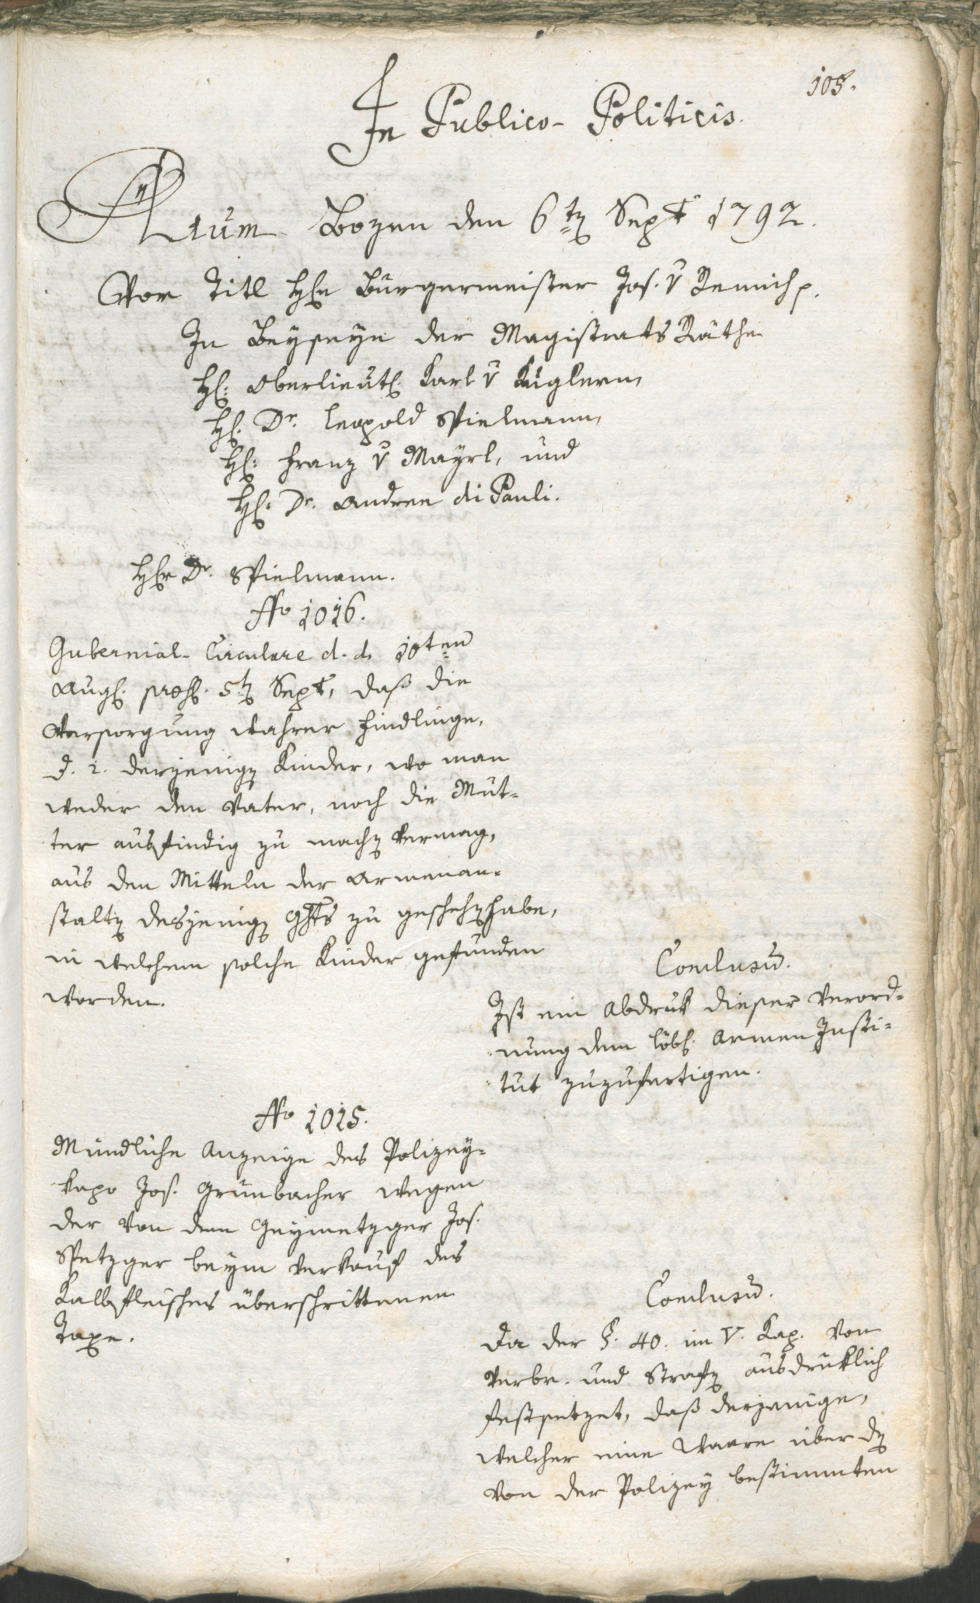 105.
In Publico-Politicis.
Actum Bozen den 6tn Sept 1792.
Vor Titl Hrn Bürgermeister Jos. v Remich p.
In Beyseyn der Magistrats Räthe
H: Oberlieut: Karl v Kuglern,
H: Dr. Leopold Spielmann,
H: Franz v Mayrl, und
H: Dr. Andree di Pauli.
Hr Dr. Spielmann.
No 1016.
Gubernial-Circulare d. d. 10ten
Aug: 5tn Sept, daß die
Versorgung wahrer Findlinge,
d. i. derjenign Kinder, wo man
weder den Vater, noch die Mut-
ter ausfindig zu machn vermag,
aus den Mitteln der Armenan-
staltn desjenign Ghts zu geschehn habe,
in welchem solche Kinder gefunden
worden.
Conclusum.
Ist ein Abdruk dieser Verord-
nung dem löbl: Armen Insti-
tut zuzufertigen.
No 1015.
Mündliche Anzeige des Polizey-
kapo Jos. Grünbacher wegen
der von dem Geymetzger Jos.
Spetzger beym Verkauf des
Kalbfleisches überschrittenen
Taxe.
Conclusum.
Da der §. 40. im V. Kap. von
Verbr. und Strafn ausdrüklich
festsetzet, daß derjenige,
welcher eine Waare über dn
von der Polizey bestimmten